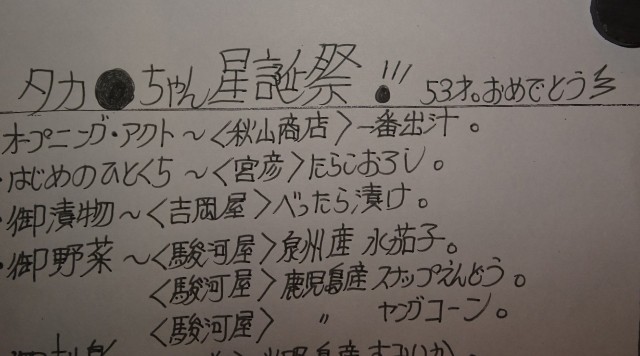 タカ●ちゃん星誕祭!!! 53才。おめでとう
オープニング・アクト～〈秋山商店〉一番出汁。
・はじめのひとくち～〈宮彦〉たらこおろし。
・御漬物～〈吉岡屋〉べったら漬け。
・御野菜～〈駿河屋〉泉州産 水茄子。
〈駿河屋〉鹿児島産 スナップえんどう。
〈駿河屋〉 〃 ヤングコーン。